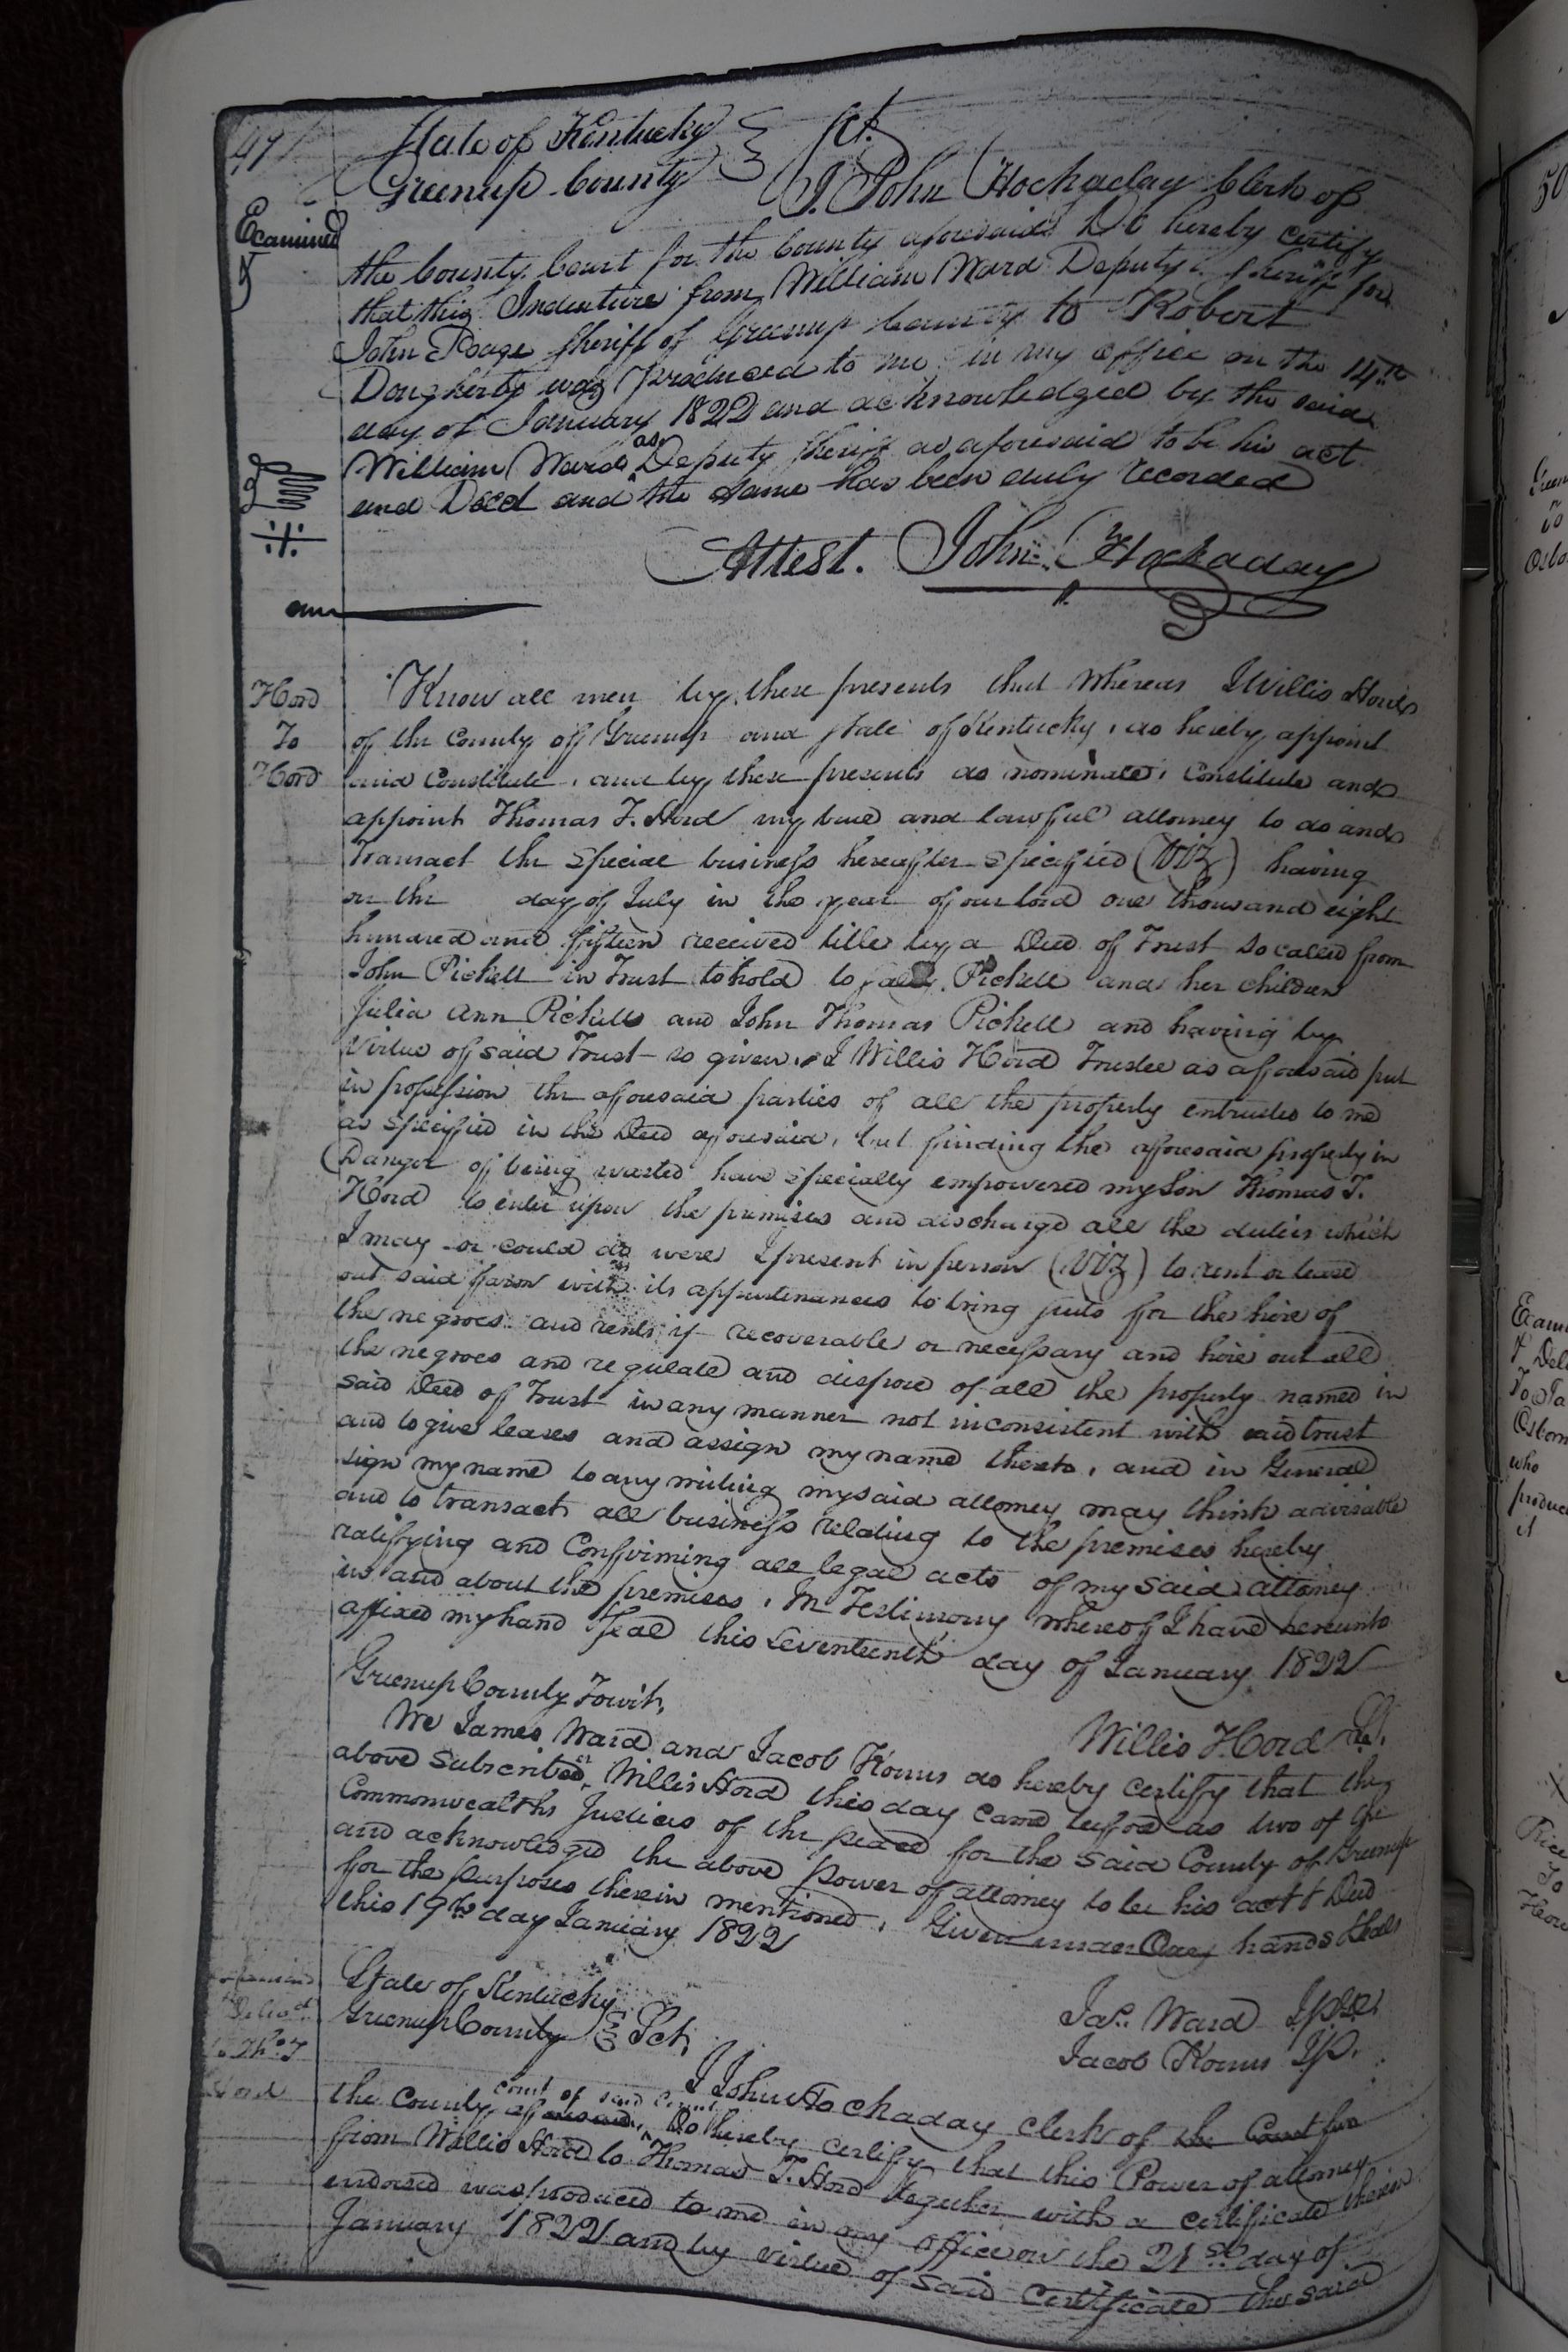 47
State of Kentucky
Greenup County } Sct.
I. John Hockaday Clerk of
Examined
the County Court for the County aforesaid Do hereby certify
that this Indenture from William Ward Deputy Sheriff for
John Poage Sheriff of Greenup County to Robert
Dougherty was produced to me in my office on the 14th
day of January 1822 and acknowledged by the said
William Ward as Deputy Sheriff as aforesaid to be his act
and Deed and the same has been duly recorded
Attest. John Hockaday
Hord
To
Hord
Know all men by these presents that whereas I Willis Hord
of the County of Greenup and state of Kentucky, do hereby appoint
and Constitute, and by these presents do nominate, Constitute and
appoint Thomas T. Hord my true and lawful attorney to do and
Transact the Special business hereafter specified (VIZ) having
on the day of July in the year of our lord one thousand eight
hundred and fifteen received title by a Deed of Trust so called from
John Pickett in Trust to hold to Pickett and her children
Julia Ann Pickett and John Thomas Pickett and having by
Virtue of said Trust so given, I Willis Hord Trustee as aforesaid put
in possession the aforesaid parties of all the property entrusted to me
as specified in the Deed aforesaid, but finding the aforesaid property in
Danger of being wasted have specially empowered my Son Thomas T.
Hord to enter upon the premises and discharge all the duties which
I may or could do were I present in person (VIZ) to rent or lease
out said farm with its appurtenances to bring suits for the hire of
the negroes and rents if recoverable or necessary and hire out all
the negroes and regulate and dispose of all the property named in
said Deed of Trust in any manner not inconsistent with said trust
and to give leases and assign my name thereto, and in General
sign my name to any writing my said attorney may think advisable
and to transact all business relating to the premises hereby
ratifying and Confirming all legal acts of my said attorney
in and about the premises, In Testimony whereof I have hereunto
affixed my hand & seal this Seventeenth day of January 1822
Willis Hord
Greenup County Towit,
We James Ward and Jacob Kouns do hereby certify that the
above subscribed Willis Hord this day came before as two of the
Commonwealths Justices of the peace for the said County of Greenup
and acknowledged the above power of attorney to be his act & Deed
for the purposes therein mentioned, Given under our hands & Seals
this 19th day January 1822
Jas. Ward
Jacob Kouns JP.
State of Kentucky
Greenup County } Sct,
Delivd
to Tho. T
Hord
I John Hockaday clerk of the Court for
the County court of said county aforesaid, Do hereby certify that this Power of attorney
from Willis Hord to Thomas T. Hord together with a certificate therein
endorsed was produced to me in my office on the 21st day of
January 1822 and by virtue of said certificate the said